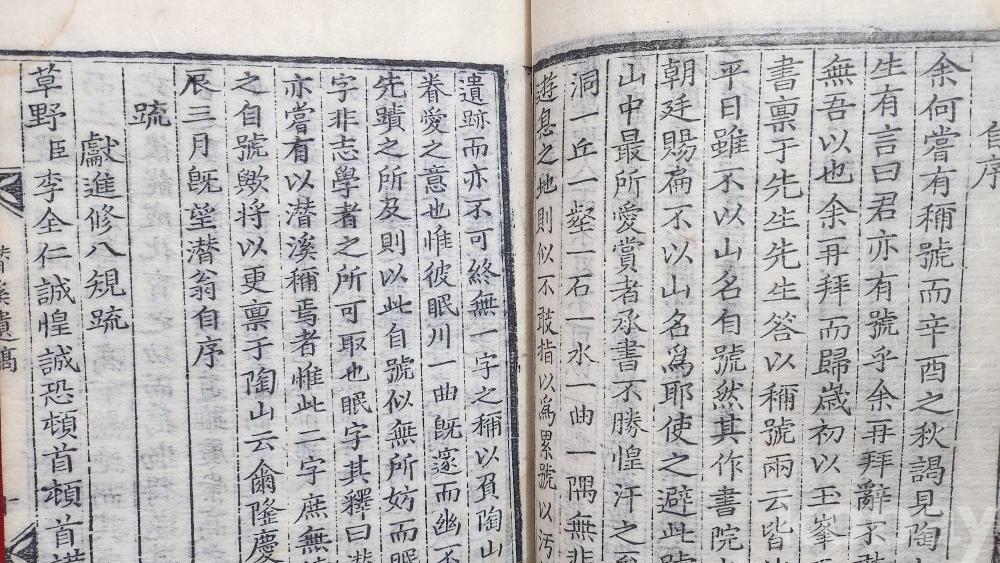 自序
余何嘗有稱號而辛酉之秋謁見陶
生有言曰君亦有號乎余再拜辭不
無吾以也余再拜而歸歲初以玉峯
書稟于先生先生答以稱號兩云皆
平日雖不以山名自號然其作書院
朝廷賜扁不以山名爲耶使之避此
山中最所愛賞者承書不勝惶汗之至
洞一丘一壑一石一水一曲一隅無非
遊息之地則似不敢指以爲累號以汚
遺跡而亦不可終無一字之稱以負陶山
眷愛之意也惟彼眠川一曲旣邃而幽不
先蹟之所及則以此自號似無所妨而眠
字非志學者之所可取也眠字其釋曰潛
亦嘗有以潜溪稱焉者惟此二字庶無
之自號歟將以更稟于陶山云爾隆慶
辰三月旣望潜翁自序
疏
獻進修八規疏
草野臣李全仁誠惶誠恐頓首頓首謹
潜溪遺稿